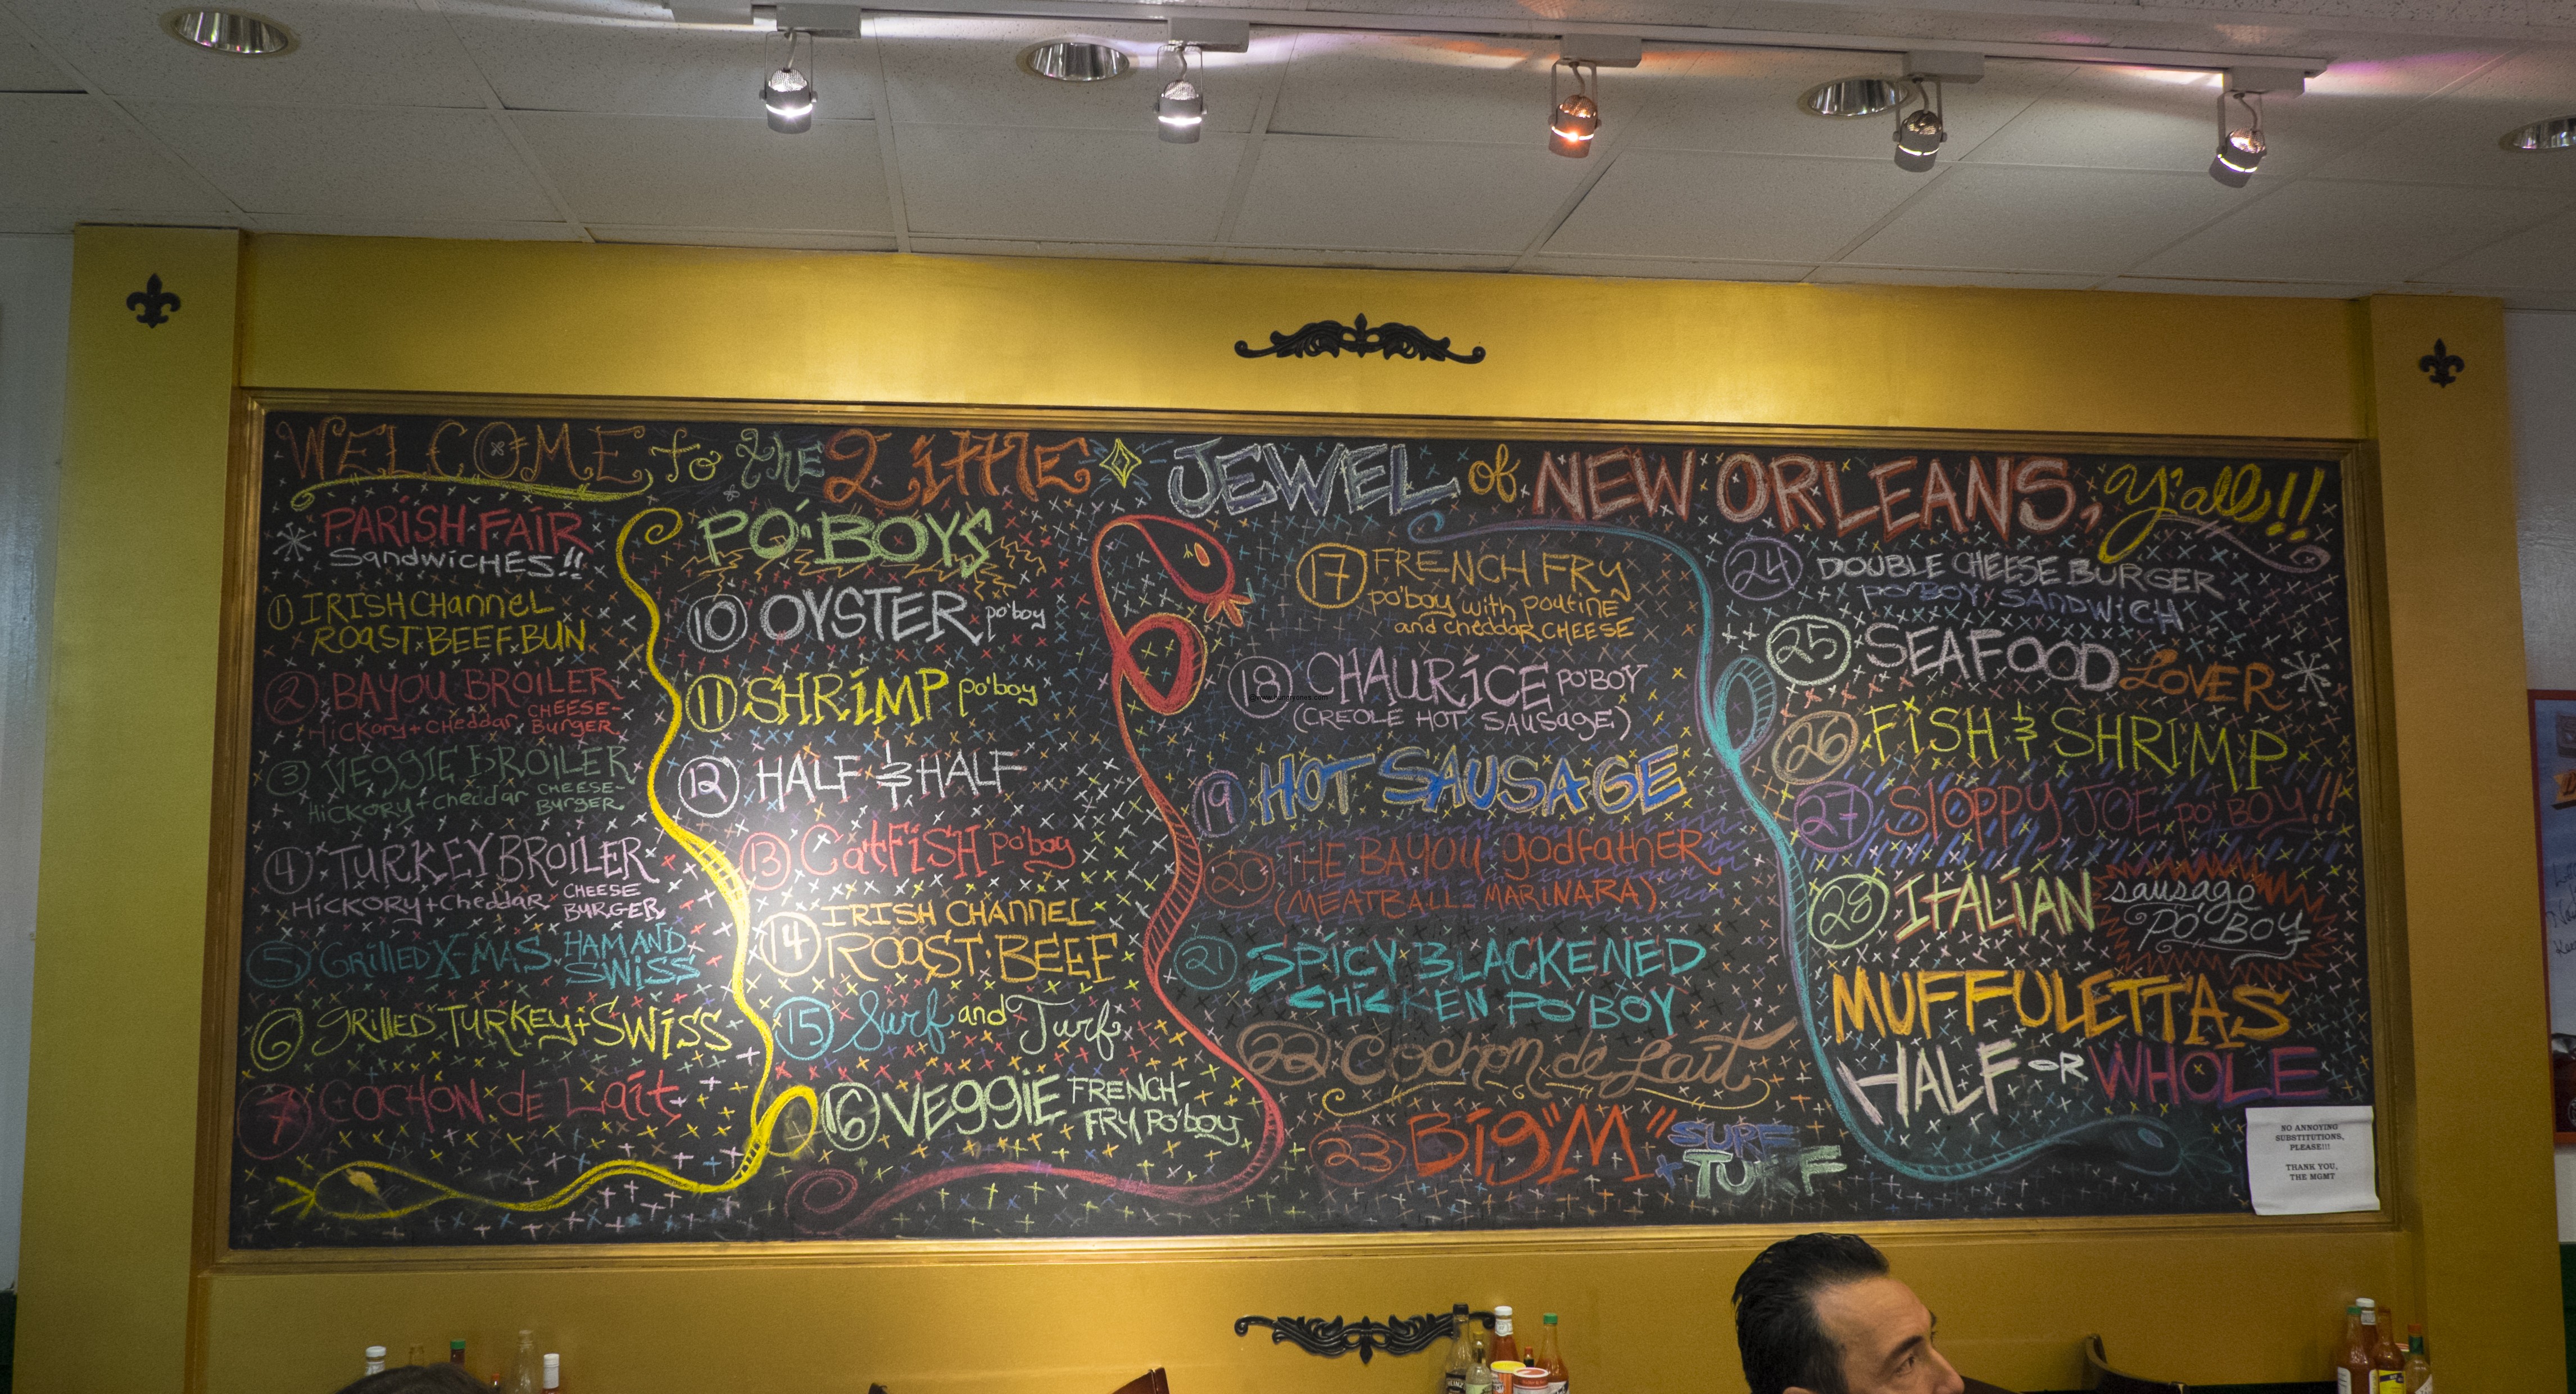 WELCOME to the Little JEWEL of NEW ORLEANS, y'all!!
PARISH FAIR
SandwicHES!!
1 IRISH CHannel
ROAST BEEF BUN
2 BAYOU BROILER
Hickory + cheddar CHEESE-
BURGER
3 VEGGIE BROILER
Hickory + cheddar CHEESE-
BURGER
4 TURKEY BROILER
Hickory + cheddar CHEESE
BURGER
5 Grilled X-MAS HAM AND
SWiSS
6 grilled TURKEY + SWiSS
7 COCHON de Lait
PO'BOYS
10 OYSTER po'boy
11 SHRiMP po'boy
12 HALF & HALF
13 CatFiSH po'boy
14 IRISH CHANNEL
ROAST BEEF
15 Surf and Turf
16 VEGGiE FRENCH-
FRY PO'boy
17 FRENCH FRY
po'boy with poutine
and cheddar CHEESE
18 CHAURiCE PO'BOY
(CREOLE HOT SAUSage)
19 HOT SAUSAGE
20 THE BAYOU godfather
(MEATBALL MARiNARA)
21 SPiCY BLACKENED
CHiCKEN PO'BOY
22 Cochon de Lait
23 Big "M" SURF
+ TURF
24 DOUBLE CHEESE BURGER
PO'BOY SANDWiCH
25 SEAFOOD LOVER
26 FiSH & SHRiMP
27 Sloppy JOE po'BOY!!
28 ITALiAN sausage
PO'BOY
MUFFULETTAS
HALF OR WHOLE
NO ANNOYING
SUBSTITUTIONS,
PLEASE!!!
THANK YOU,
THE MGMT